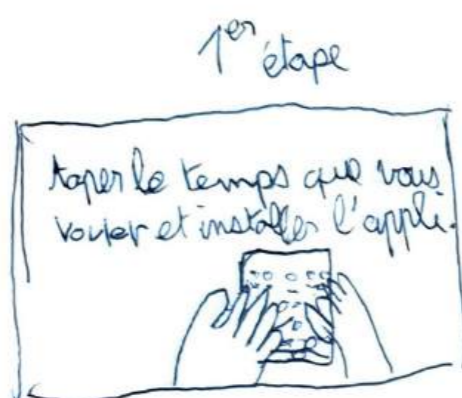 1er étape
taper le temps que vous
voulez et installer l'appli.